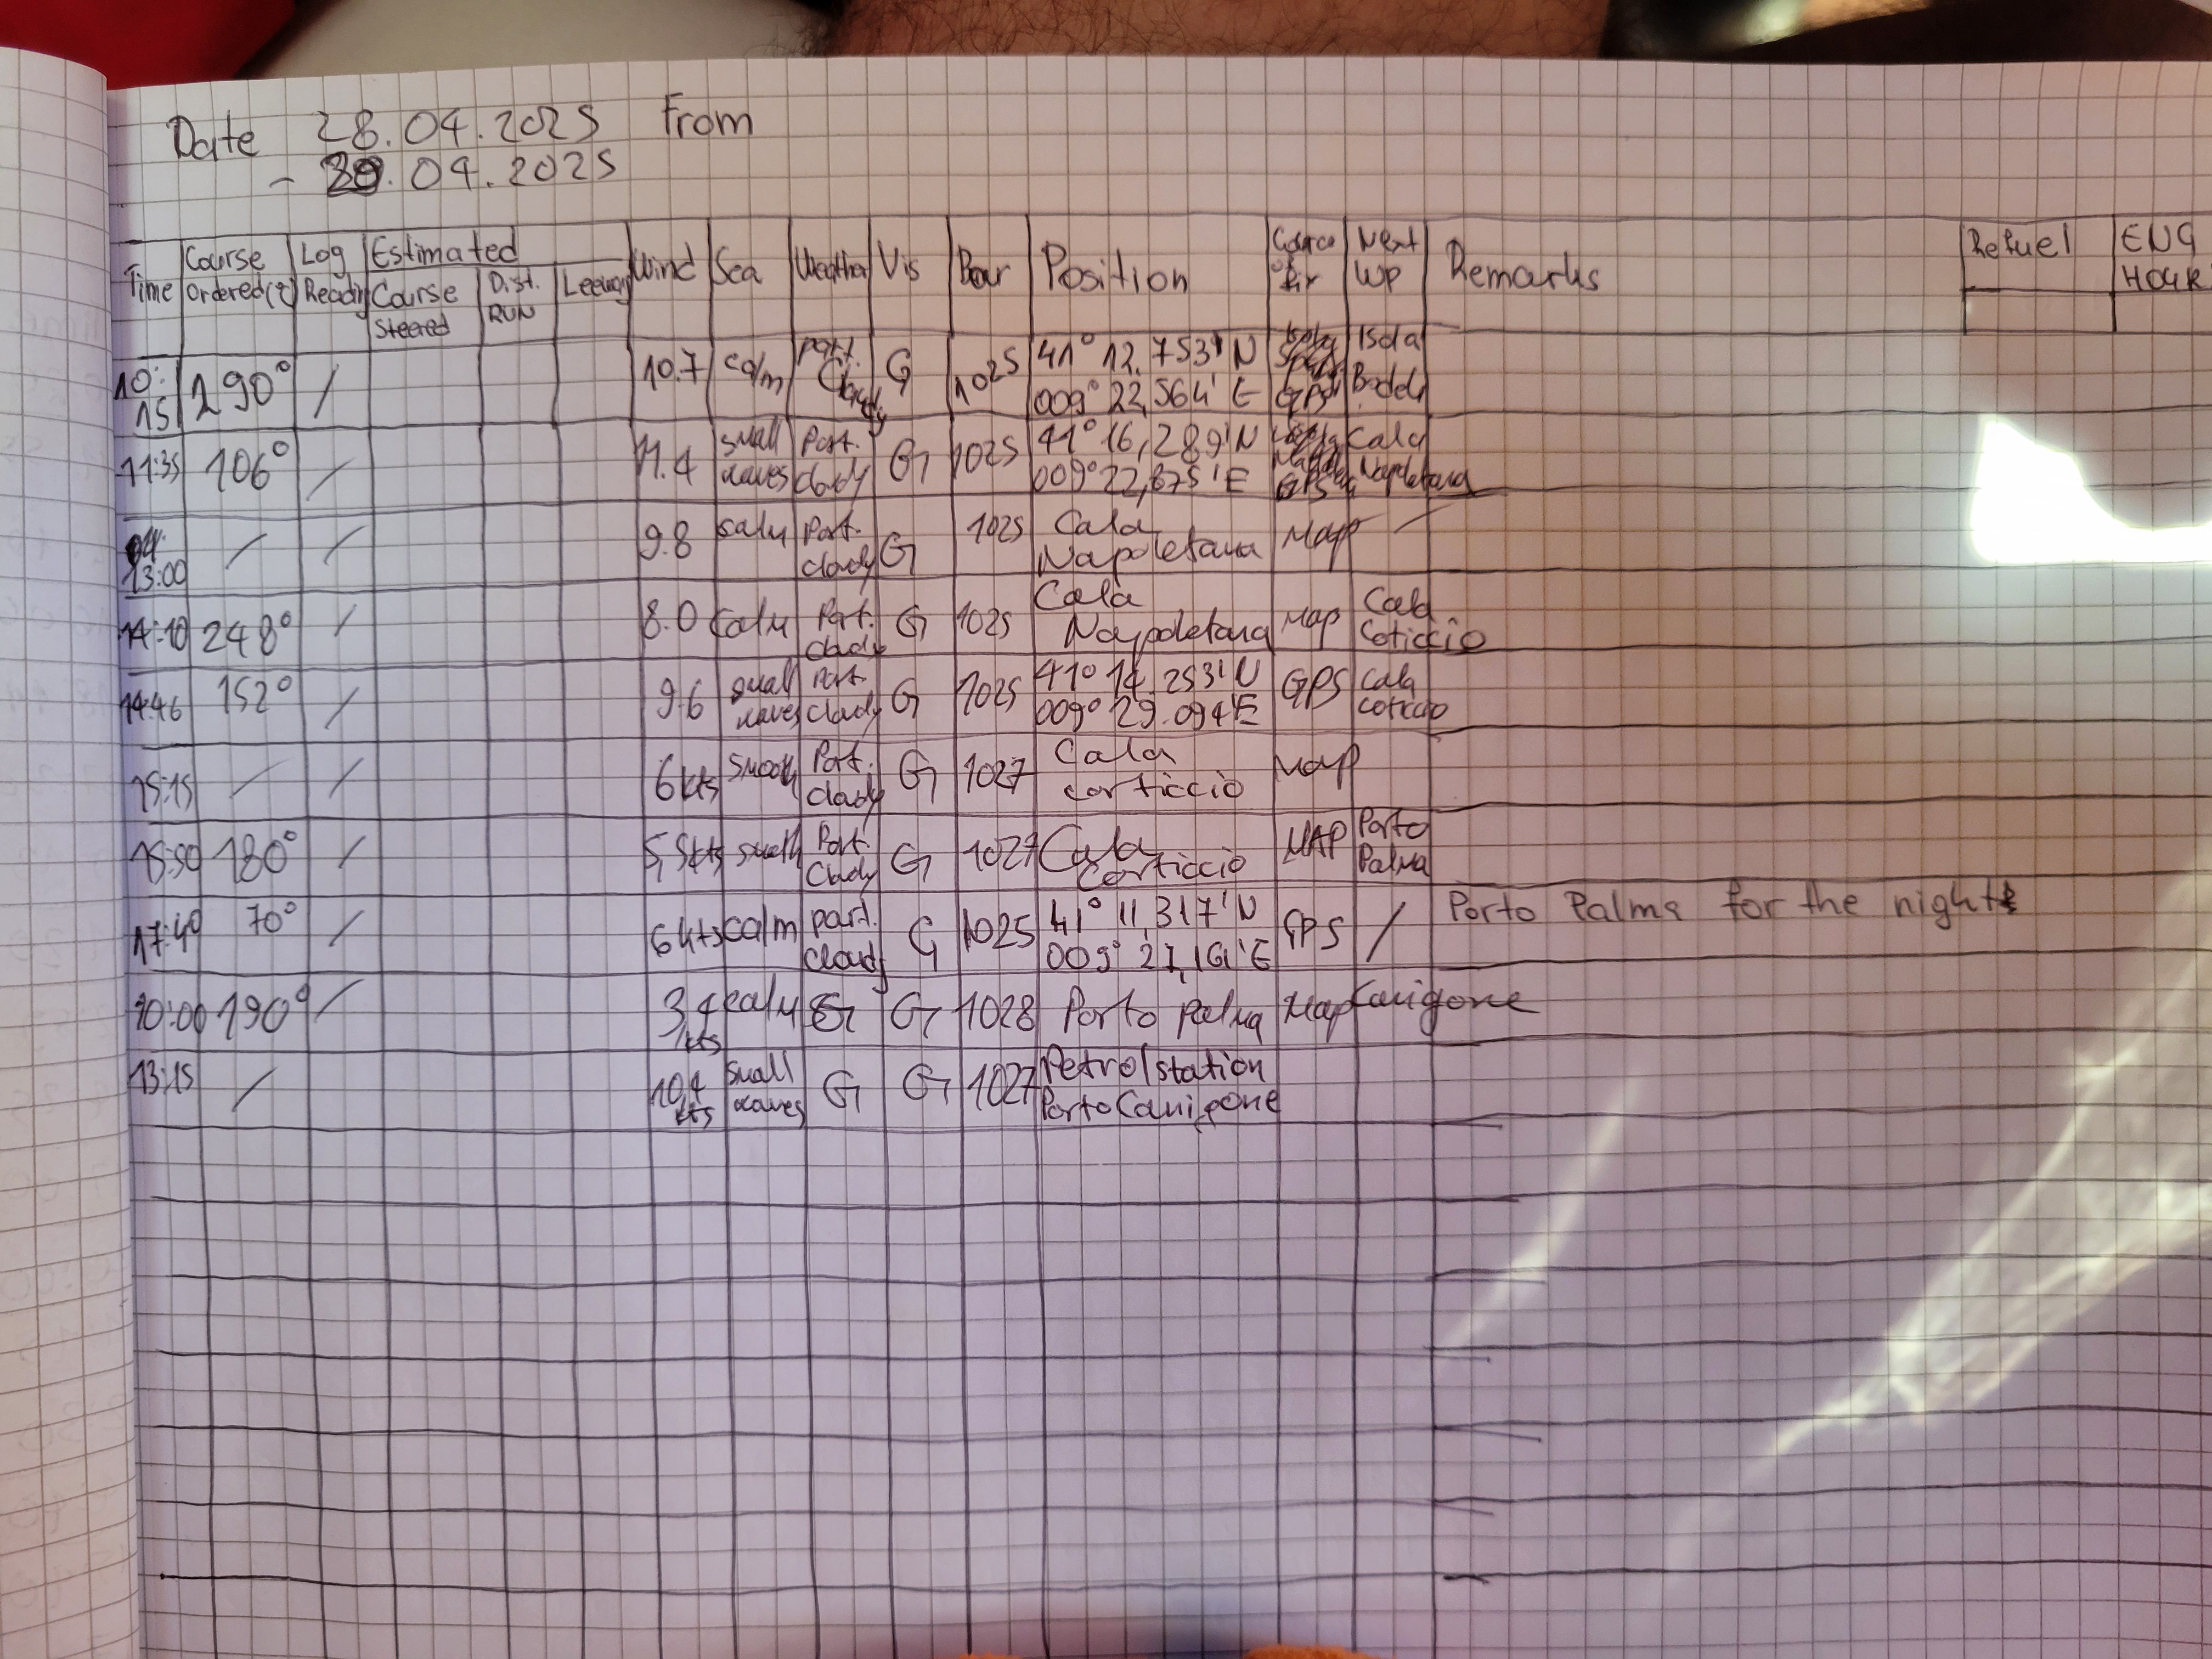 Date 28.04.2025 From
- 04.2025
Time Course Ordered(t) Log Reading Estimated Course Steered Dist. RUN Leeway Wind Sea Weather Vis Bar Position Source Fix Next WP Remarks Refuel ENG HOUR
10:15 290° / 10.7 calm part. Cloudy G 1025 41° 12,753' N 009° 22,564' E GPS Isola Budeli
11:35 106° / 11.4 small waves Part. clody G 1025 41° 16,289'N 009° 22,875'E GPS Cala Napoletana
13:00 / / 9.8 calm Part. clody G 1025 Cala Napoletana Map /
14:10 248° / 8.0 calm Part. clody G 1025 Cala Napoletana Map Cala Coticcio
14:46 152° / 9.6 small waves Part. clody G 1025 41° 14.253'N 009° 29.094'E GPS Cala Coticcio
15:15 / / 6 kts smooth Part. clody G 1027 Cala corticcio Map
15:50 180° / 5,5kts smooth Part. Clody G 1027 Cala Corticcio MAP Porto Palma
17:40 70° / 6 kts calm part. cloudy G 1025 41° 11,317'N 009° 27,161'E GPS / Porto Palma for the night
10:00 190° / 3,4 kts calm G G 1028 Porto palma Map Canigone
13:15 / 10,4 kts small waves G G 1027 Petrol station Porto Canigone